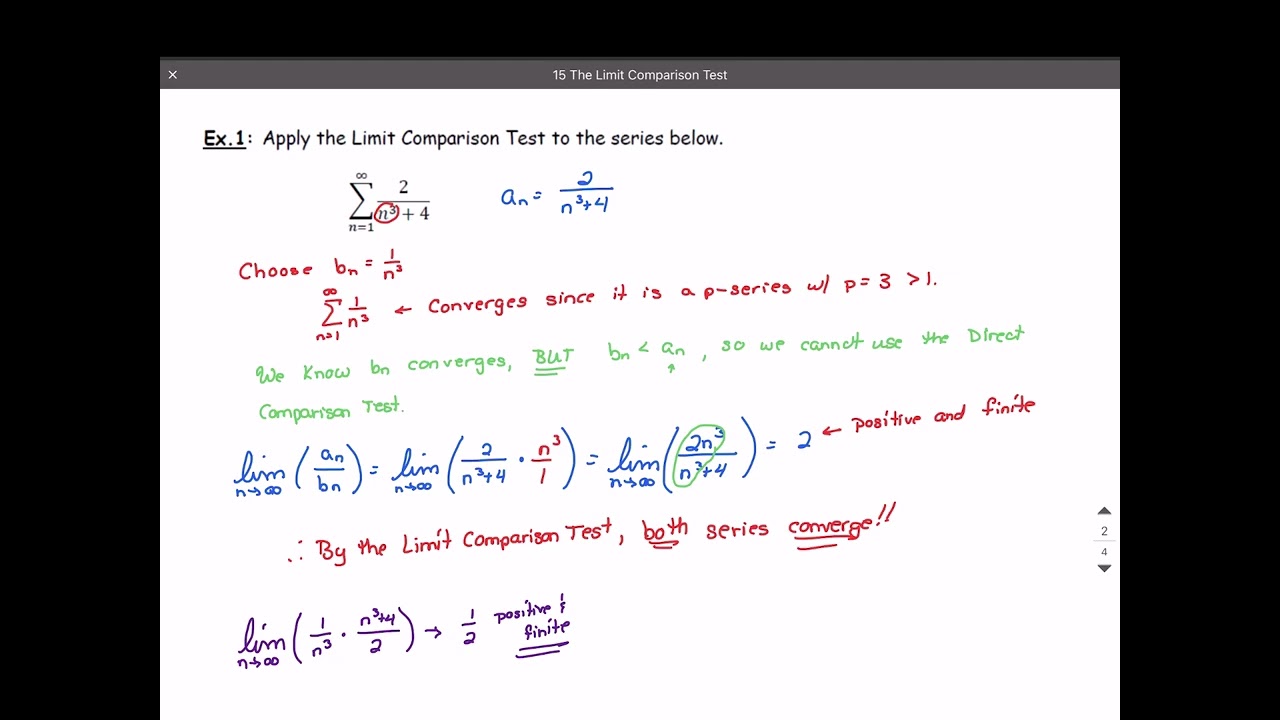 × 15 The Limit Comparison Test
Ex.1: Apply the Limit Comparison Test to the series below.
∞∑n=1 2/(n³ + 4) aₙ = 2/(n³+4)
Choose bₙ = 1/n³
∞∑n=1 1/n³ ← Converges since it is a p-series w/ p = 3 > 1.
We know bₙ converges, BUT bₙ < aₙ, so we cannot use the Direct
↑
Comparison Test.
lim n→∞ (aₙ/bₙ) = lim n→∞ (2/(n³+4) · n³/1) = lim n→∞ (2n³/(n³+4)) = 2 ← positive and finite
∴ By the Limit Comparison Test, both series converge!!
2
4
lim n→∞ (1/n³ · (n³+4)/2) → 1/2 positive &
finite